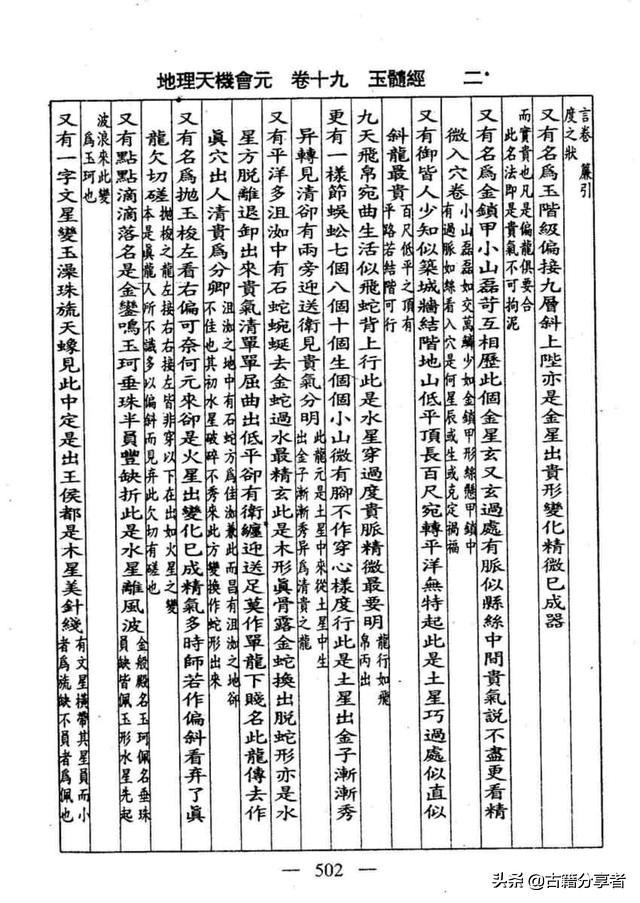 地理天機會元　卷十九　玉髓經　二
言卷　簾引
度之狀
又有名爲玉階級偏接九層斜上陛亦是金星出貴形變化精微已成器
而實貴也凡是偏龍俱要合
此名法即是貴氣不可拘泥
又有名爲金鎖甲小山磊砢互相歷此個金星玄又玄過處有脈似縣絲中間貴氣説不盡更看精
微入穴卷
小山磊磊如交萬鱗少如金鎖甲形絲懸甲鎖中
有過脈如絲看入穴是何星辰或生或克定禍福
又有御皆人少知似築城牆結階地山低平頂長百尺宛轉平洋無特起此是土星巧過處似直似
斜龍最貴
百尺低平之頂有
平路若結階可行
九天飛帛宛曲生活似飛蛇背上行此是水星穿過度貴脈精微最要明
龍行如飛
帛丙出
更有一樣節蜈蚣七個八個十個生個個小山微有腳不作穿心樣度行此是土星出金子漸漸秀
异轉見清卻有兩旁迎送衛見貴氣分明
此龍元是土星中來從土星中生
出金子漸漸秀异爲清貴之龍
又有平洋多沮洳中有石蛇蜿蜒去金蛇過水最精玄此是木形眞骨露金蛇換出脱蛇形亦是水
星方脱離退卸出來貴氣清單單屈曲出低平卻有衛纏迎送足莫作單龍下賤名此龍傳去作
眞穴出人清貴爲分卿
沮洳之地中有石蛇方爲佳洳兼此而昌有沮洳之地卻
不佳也其初水星破碎不秀來此方變換作蛇形出來
又有名爲抛玉梭左看右偏可奈何元來卻是火星出變化巳成精氣多時師若作偏斜看弃了眞
龍欠切磋
抛梭之龍左接右右接左皆非穿以下在出如火星之變
本是眞龍人所不識多以偏斜而見弃此欠切有磋也
又有點點滴滴落名是金鑾鳴玉珂垂珠半員豐缺折此是水星離風波
金般殿名玉珂佩名垂珠
員缺皆佩玉形水星先起
波浪來此變
爲玉珂也
又有一字文星變玉澡珠旒天蟓見此中定是出王侯都是木星美針綫
有文星橫帶其星員而小
者爲旒缺不員者爲佩也
— 502 —
头条 @古籍分享者